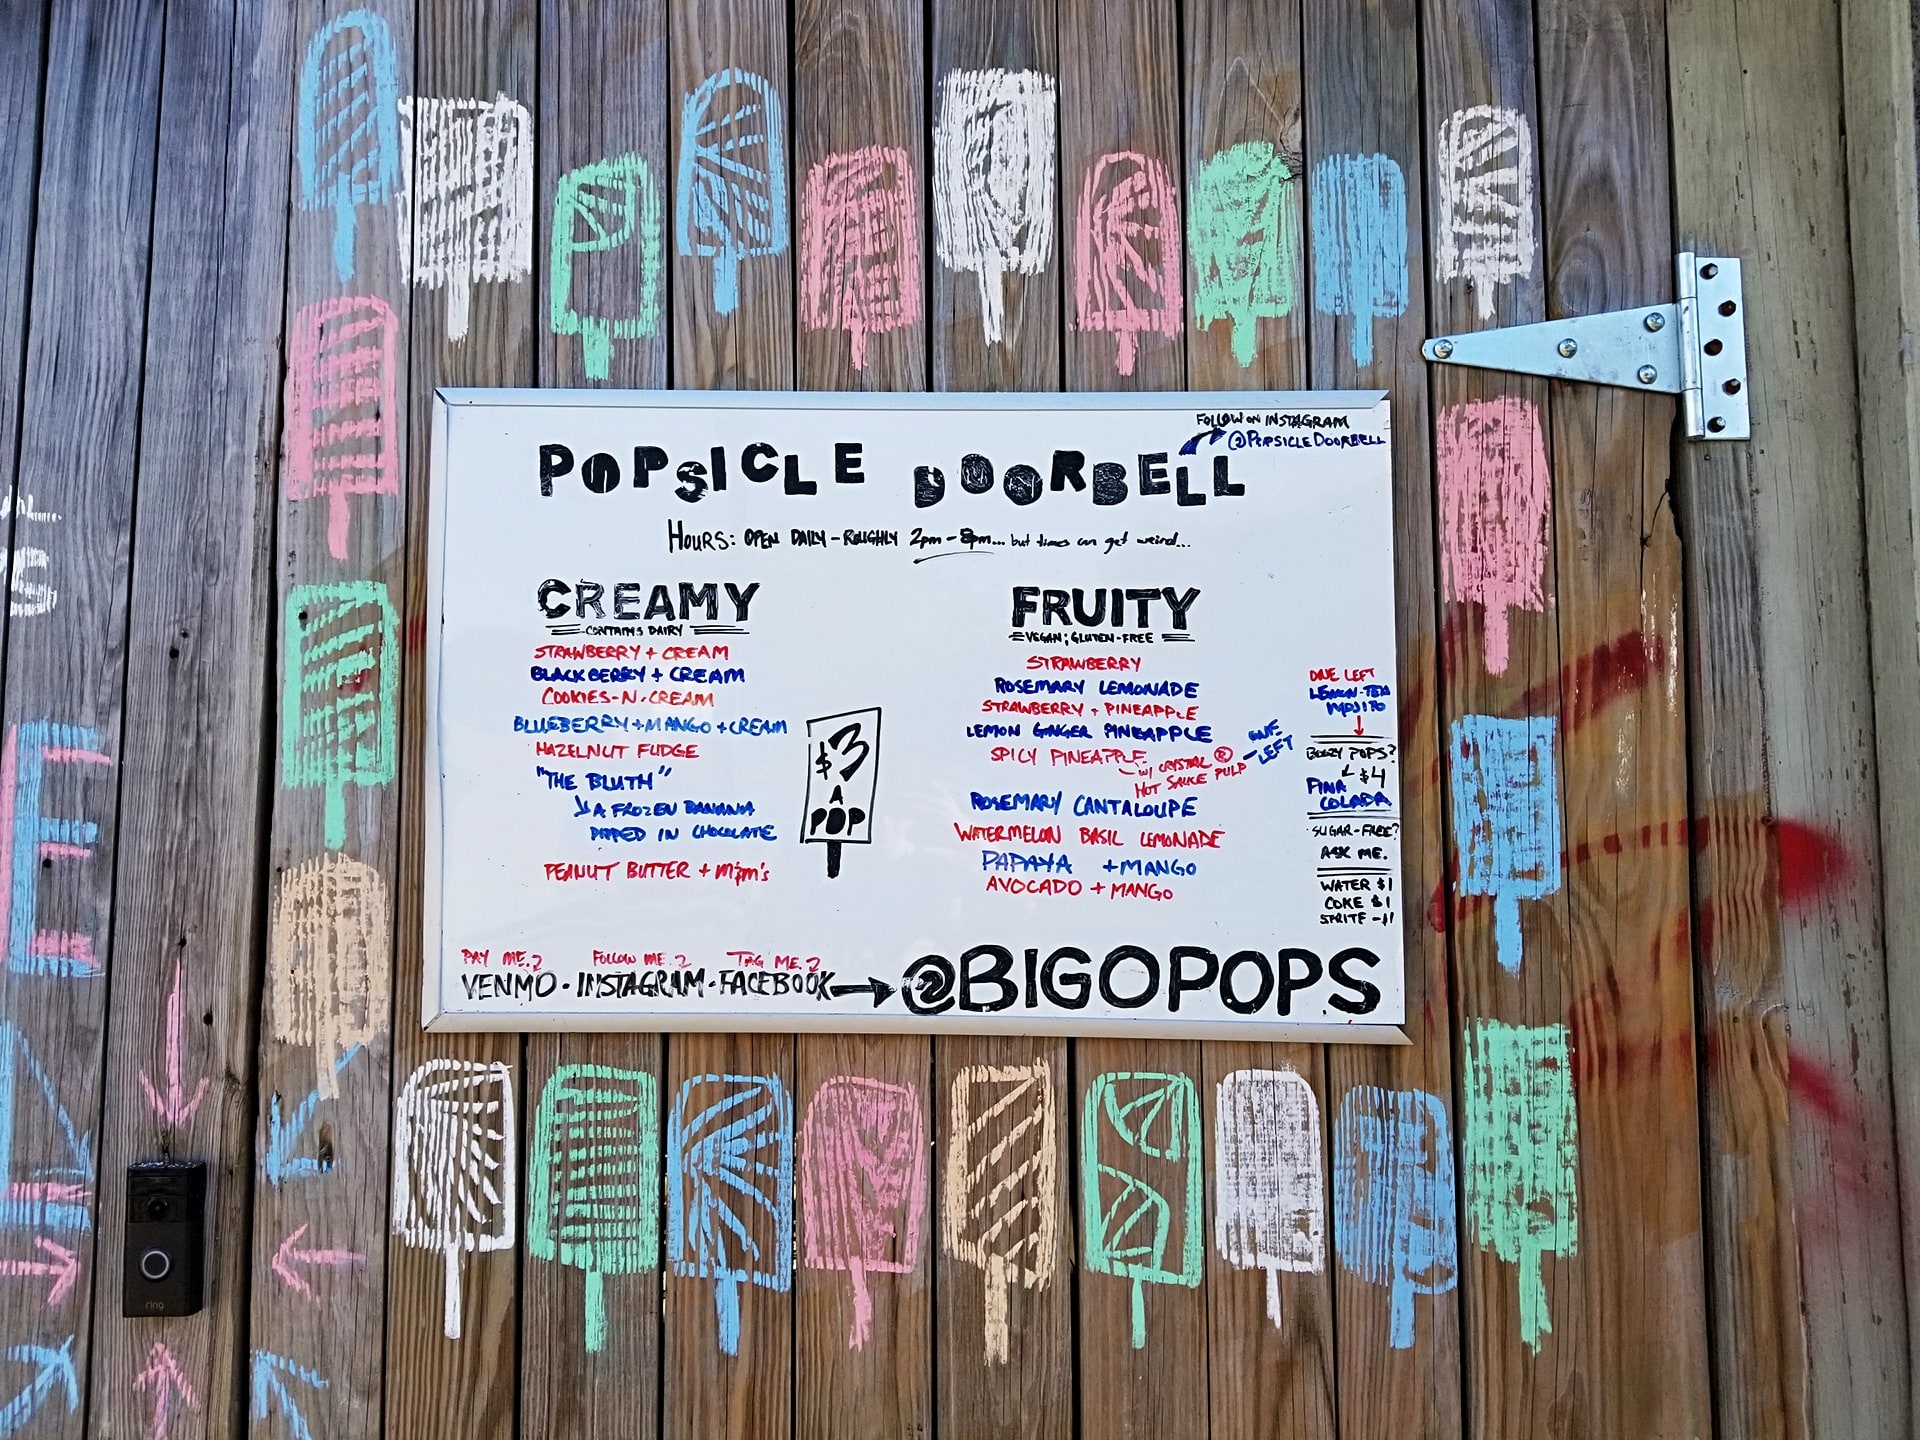 FOLLOW ON INSTAGRAM
@POPSICLEDOORBELL
POPSICLE DOORBELL
HOURS: OPEN DAILY - ROUGHLY 2pm - 8pm... but times can get weird...
CREAMY
CONTAINS DAIRY
STRAWBERRY + CREAM
BLACKBERRY + CREAM
COOKIES-N-CREAM
BLUEBERRY + MANGO + CREAM
HAZELNUT FUDGE
"THE BLUTH"
A FROZEN BANANA
DIPPED IN CHOCOLATE
PEANUT BUTTER + M&M's
$3
A
POP
FRUITY
VEGAN; GLUTEN-FREE
STRAWBERRY
ROSEMARY LEMONADE
STRAWBERRY + PINEAPPLE
LEMON GINGER PINEAPPLE
SPICY PINEAPPLE
W/ CRYSTAL ®
HOT SAUCE PULP
ONE
LEFT
ROSEMARY CANTALOUPE
WATERMELON BASIL LEMONADE
PAPAYA + MANGO
AVOCADO + MANGO
ONE LEFT
LEMON-TEA
MOJITO
BOOZY POPS?
$4
PINA
COLADA
SUGAR-FREE?
ASK ME.
WATER $1
COKE $1
SPRITE - $1
PAY ME. FOLLOW ME TAG ME.
VENMO · INSTAGRAM · FACEBOOK → @BIGOPOPS
E
ring